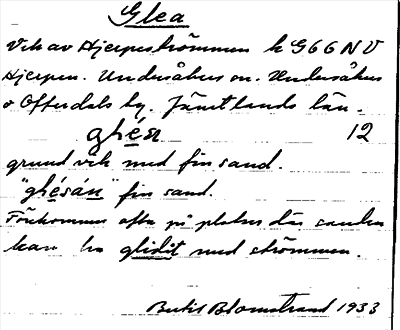 Glea
Vik av Hjerpeströmmen k G66 N V
Hjerpen. Undersåkers sn. Undersåkers
o Offerdals hg. Jämtlands län.
glién 12
grund vik med fin sand.
"glésán" fin sand.
Förekommer ofta på platser där sanden
kan ha glidit med strömmen.
Bertil Blomstrand 1933